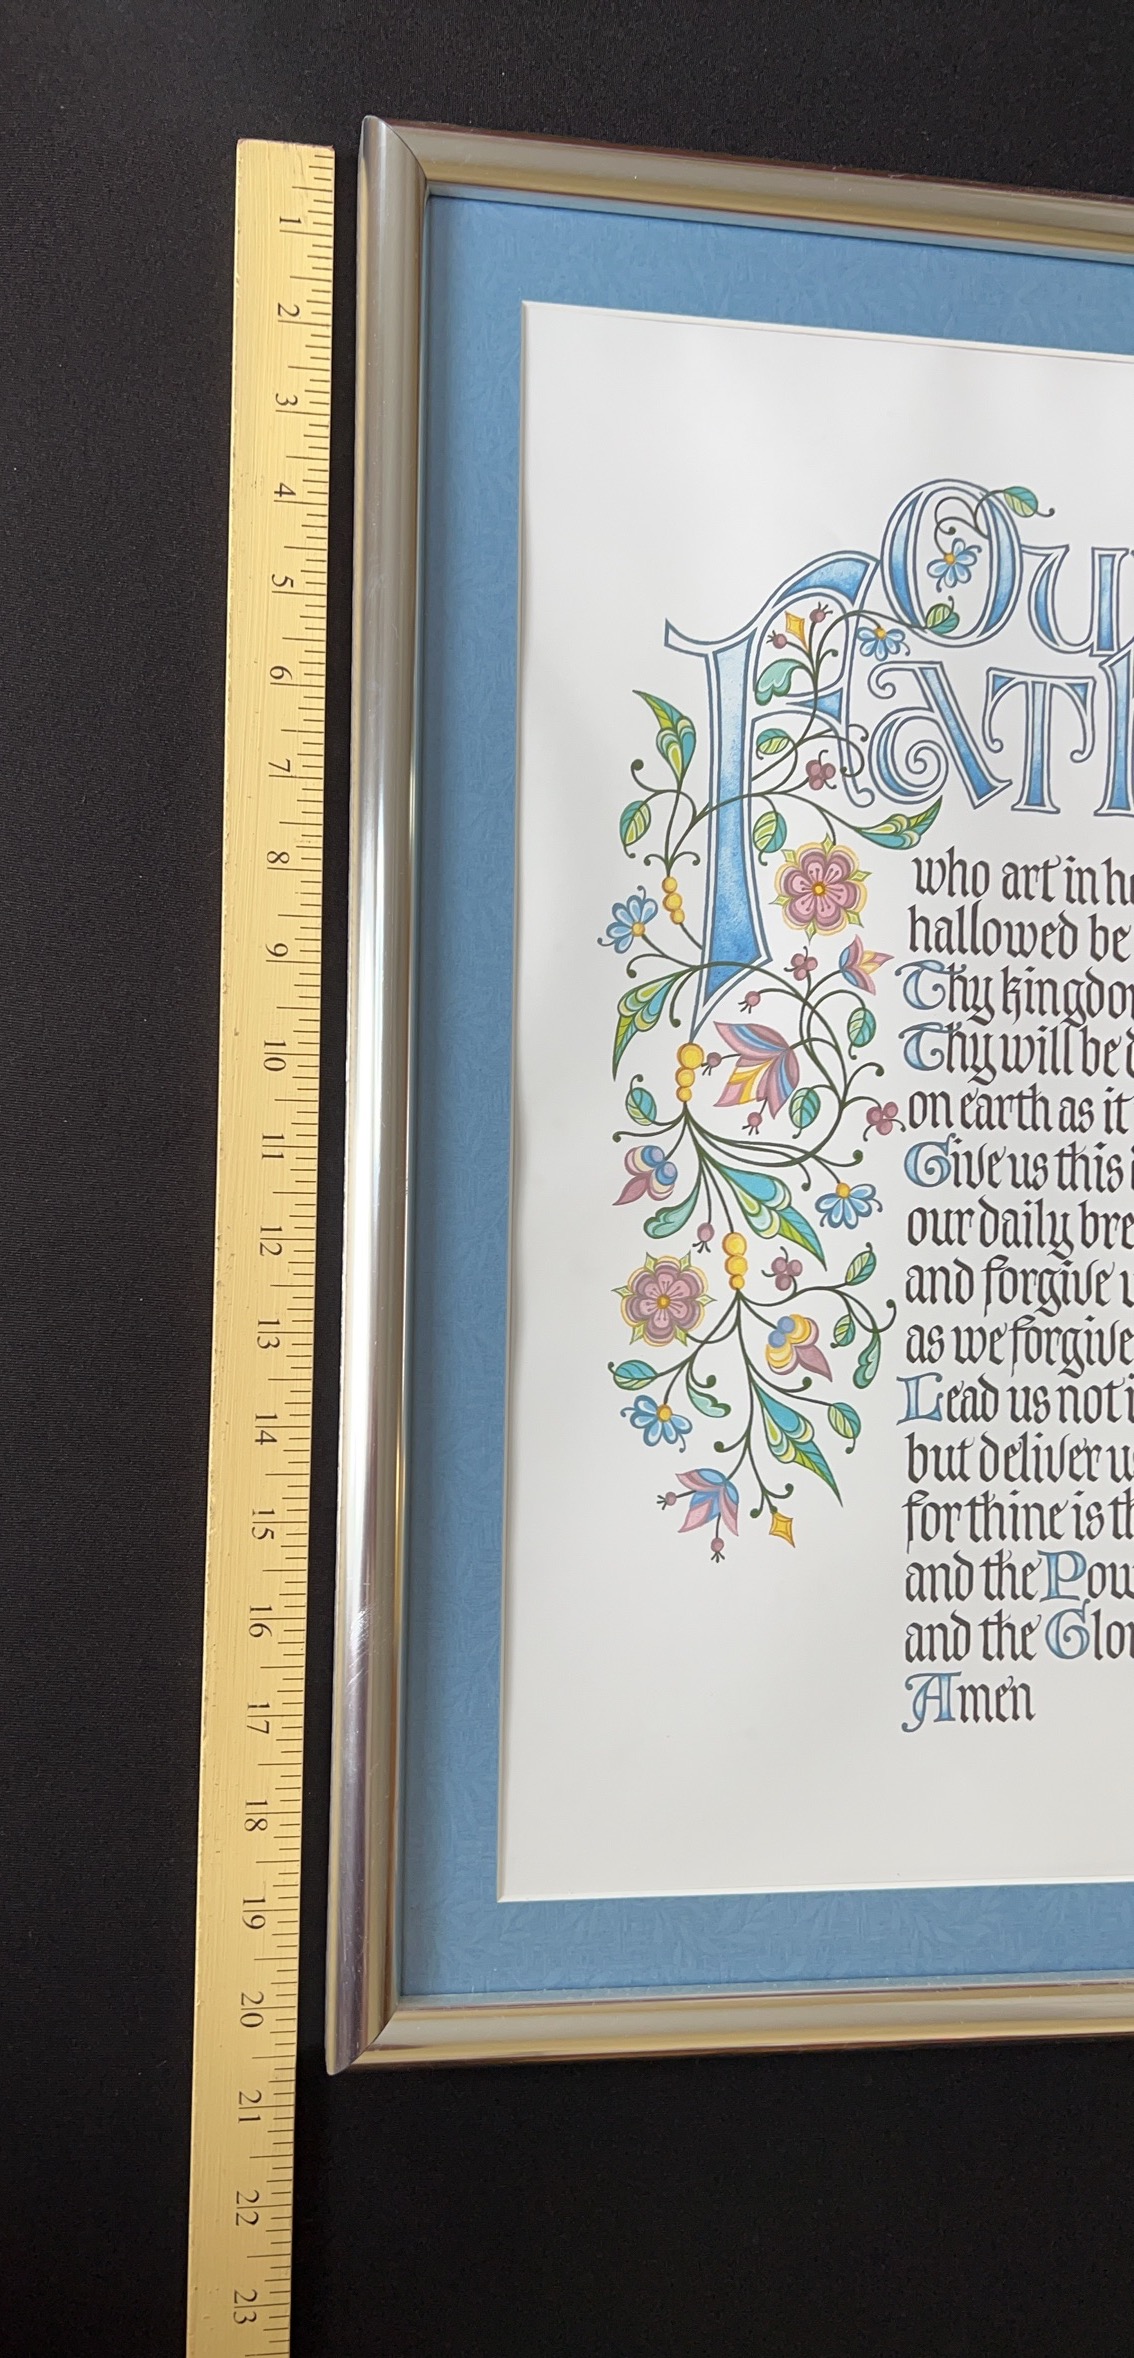 1
2
3
4
5
6
7
8
9
10
11
12
13
14
15
16
17
18
19
20
21
22
23
Ou
Fath
who art in he
hallowed be
Thy kingdo
Thy will be d
on earth as it
Give us this
our daily bre
and forgive u
as we forgive
Lead us not i
but deliver u
for thine is th
and the Pow
and the Glo
Amen